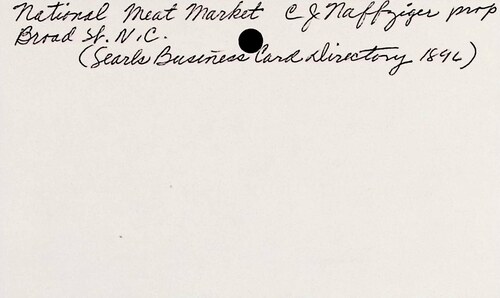 National Meat Market C J Naffziger prop
Broad St. N.C.
(Searls Business Card Directory 1896)